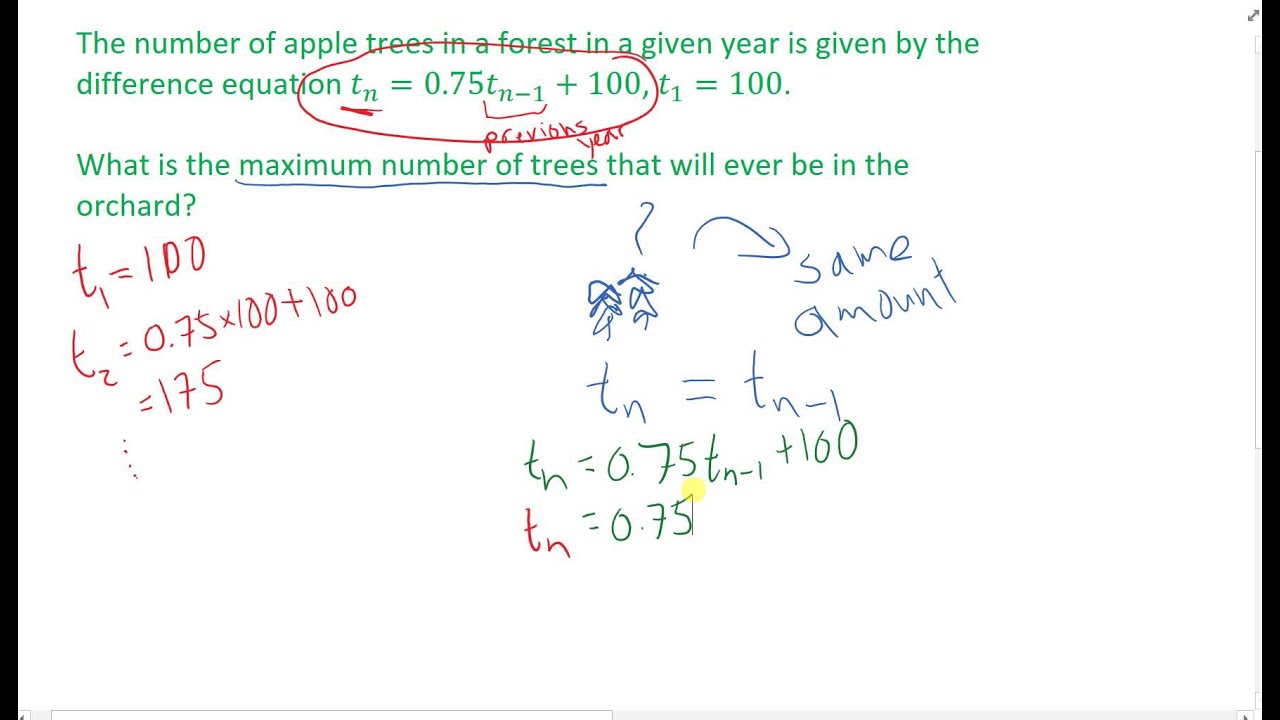 The number of apple trees in a forest in a given year is given by the
difference equation tₙ = 0.75tₙ₋₁ + 100, t₁ = 100.
previous
year
What is the maximum number of trees that will ever be in the
orchard?
t₁ = 100
t₂ = 0.75×100+100
= 175
⋮
?
same
amount
tₙ = tₙ₋₁
tₙ = 0.75tₙ₋₁ + 100
tₙ = 0.75